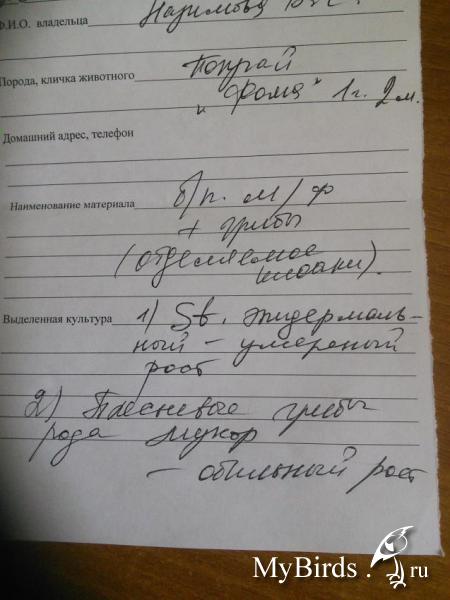 Ф.И.О. владельца
Порода, кличка животного Попугай
"Фома" 1г. 2м.
Домашний адрес, телефон
Наименование материала б/п. м/ф
+ грибы
(отделяемое
клоаки).
Выделенная культура 1) St. эпидермаль-
ный - умереный
рост
2) Плесневые грибы
рода мукор
- обильный рост
MyBirds.ru